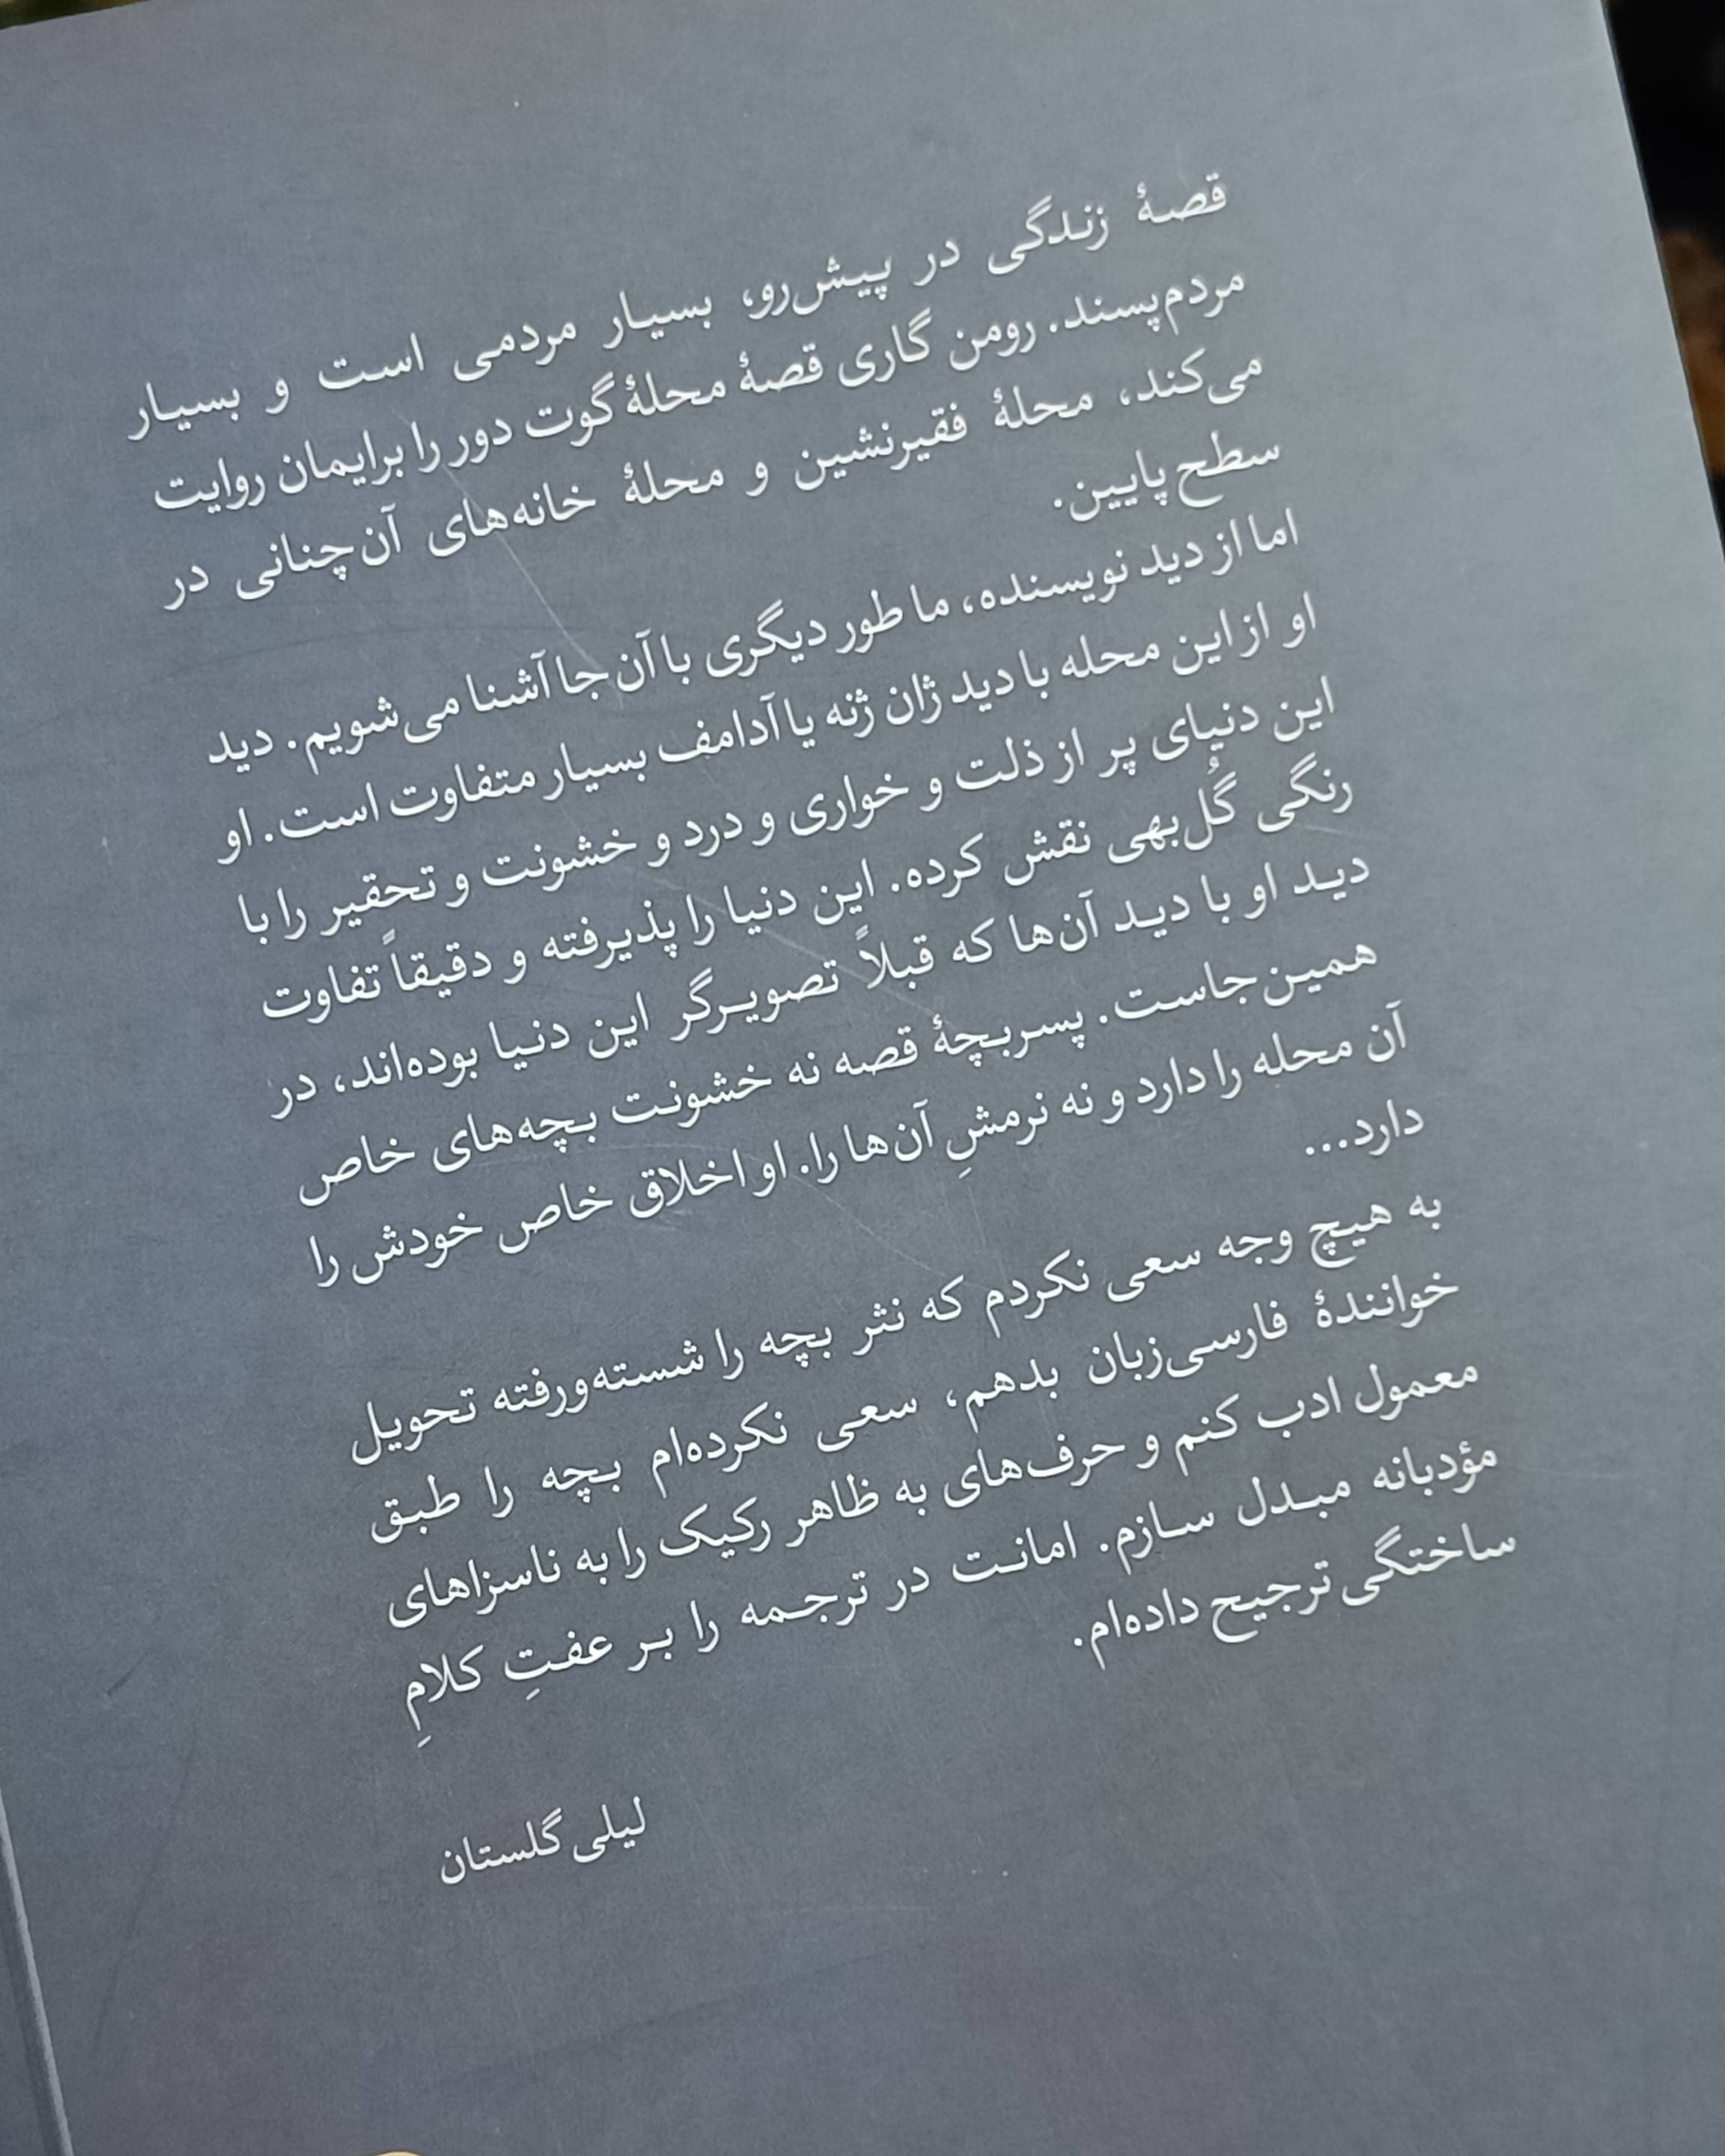 قصهٔ زندگی در پیش‌رو، بسیار مردمی است و بسیار
مردم‌پسند. رومن گاری قصهٔ محلهٔ گوت دور را برایمان روایت
می‌کند، محلهٔ فقیرنشین و محلهٔ خانه‌های آن‌چنانی در
سطح پایین.
اما از دید نویسنده، ما طور دیگری با آن‌جا آشنا می‌شویم. دید
او از این محله با دید ژان ژنه یا آدامف بسیار متفاوت است. او
این دنیای پر از ذلت و خواری و درد و خشونت و تحقیر را با
رنگی گُل‌بهی نقش کرده. این دنیا را پذیرفته و دقیقاً تفاوت
دید او با دید آن‌ها که قبلاً تصویرگر این دنیا بوده‌اند، در
همین‌جاست. پسربچهٔ قصه نه خشونت بچه‌های خاص
آن محله را دارد و نه نرمشِ آن‌ها را. او اخلاق خاص خودش را
دارد...
به هیچ وجه سعی نکردم که نثر بچه را شسته‌ورفته تحویل
خوانندهٔ فارسی‌زبان بدهم، سعی نکرده‌ام بچه را طبق
معمول ادب کنم و حرف‌های به ظاهر رکیک را به ناسزاهای
مؤدبانه مبدل سازم. امانت در ترجمه را بر عفتِ کلامِ
ساختگی ترجیح داده‌ام.
لیلی گلستان